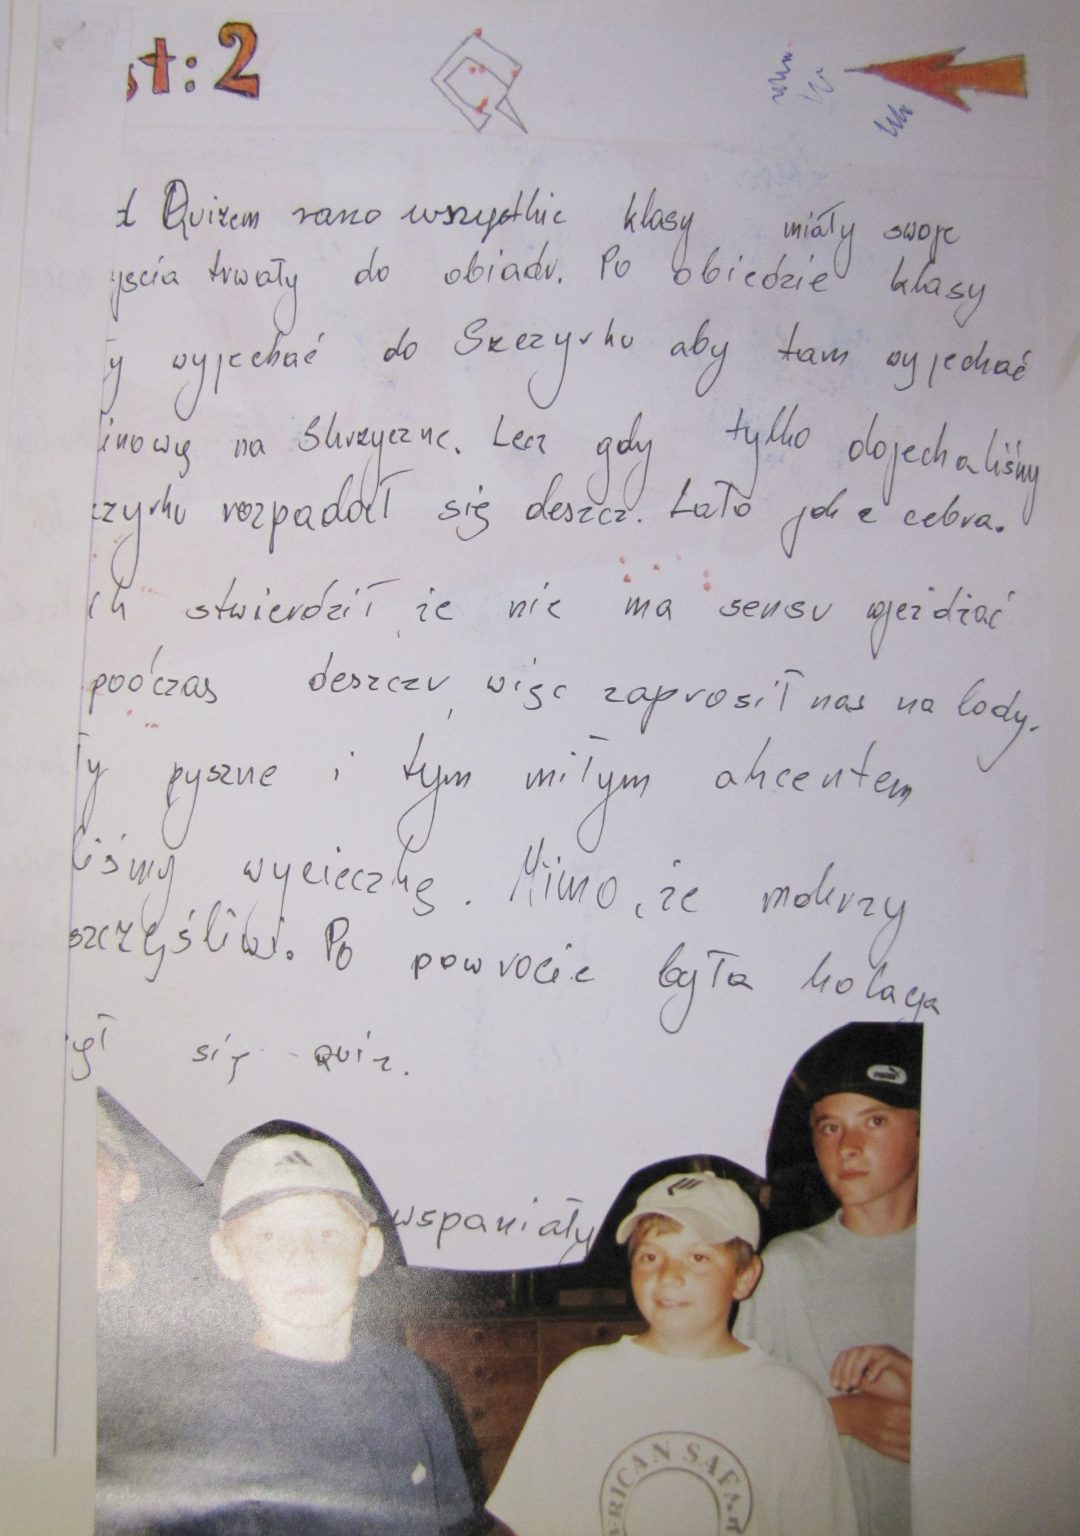 st: 2
d Quizem rano wszystkie klasy miały swoje
yścia trwały do obiadu. Po obiedzie klasy
y wyjechać do Szczyrku aby tam wyjechać
linową na Skrzyczne. Lecz gdy tylko dojechaliśmy
zyrku rozpadał się deszcz. Lało jak z cebra.
ch stwierdził, że nie ma sensu wjeżdżać
podczas deszczu, więc zaprosił nas na lody.
ły pyszne i tym miłym akcentem
liśmy wycieczkę. Mimo, że mokrzy
szczęśliwi. Po powrocie była kolacja
ył się quiz.
wspaniały
RICAN SAFAR